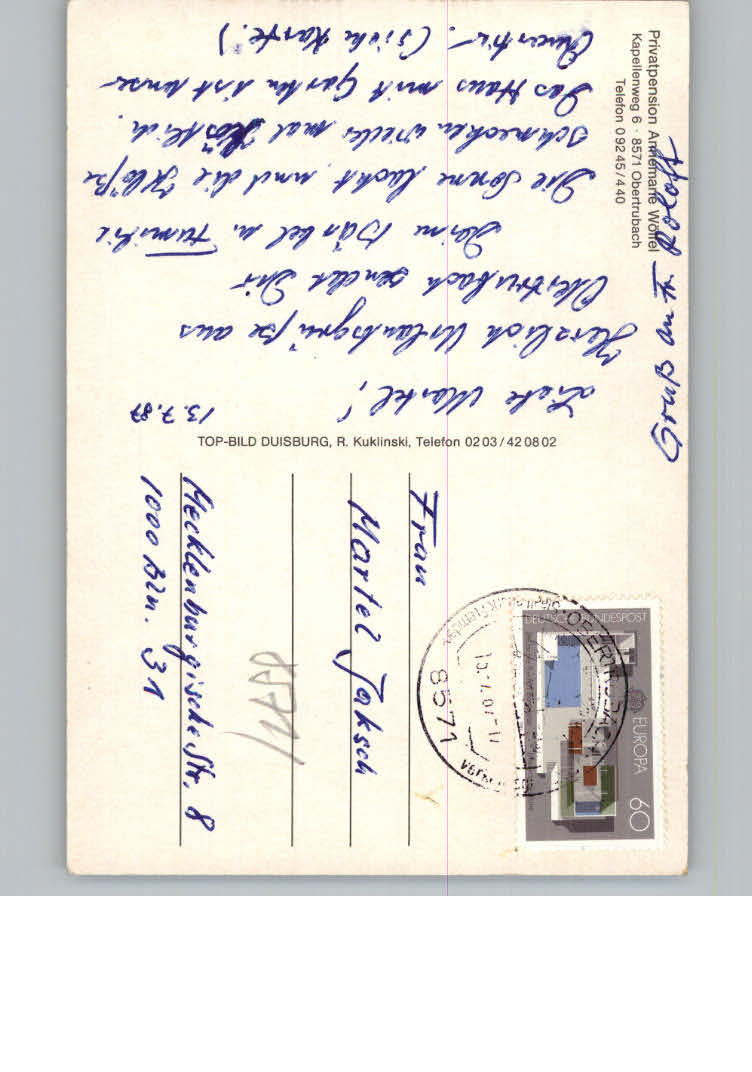 Privatpension Annemarie Wölfel
Kapellenweg 6 · 8571 Obertrubach
Telefon 0 92 45 / 4 40
13.7.87
Liebe Martel!
Herzlich Urlaubsgrüße aus
Obertrubach sendet Dir
Deine Bärbel u. Familie
Die Sonne lacht und die Klöße
schmecken wieder mal Köstlich.
Das Haus mit Garten ist unser
Quartier. (siehe Karte.)
Gruß an
TOP-BILD DUISBURG, R. Kuklinski, Telefon 02 03 / 42 08 02
Frau
Martel Jaksch
Mecklenburgische Str. 8
1000 Bln. 31
8571
DEUTSCHE BUNDESPOST
EUROPA
60
OBERTRUBACH
8571